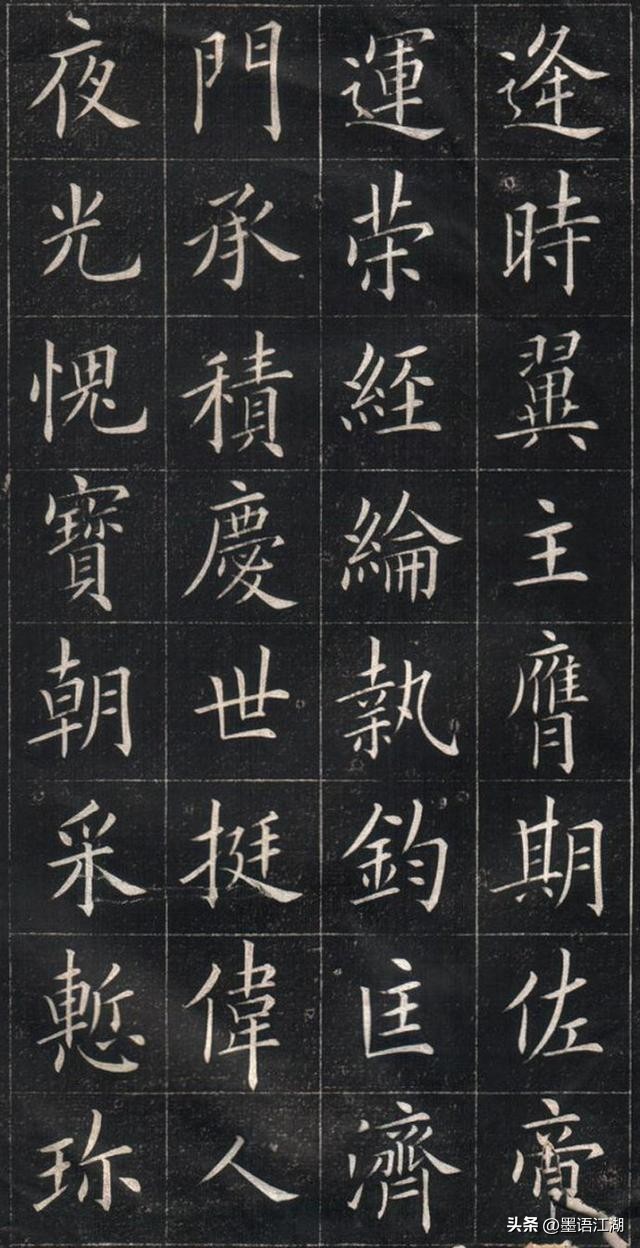 逄時翼主膺期佐帝
運荣經綸執鈞匡濟
門承積慶世挺偉人
夜光愧寳朝采慙珎
头条 @墨语江湖